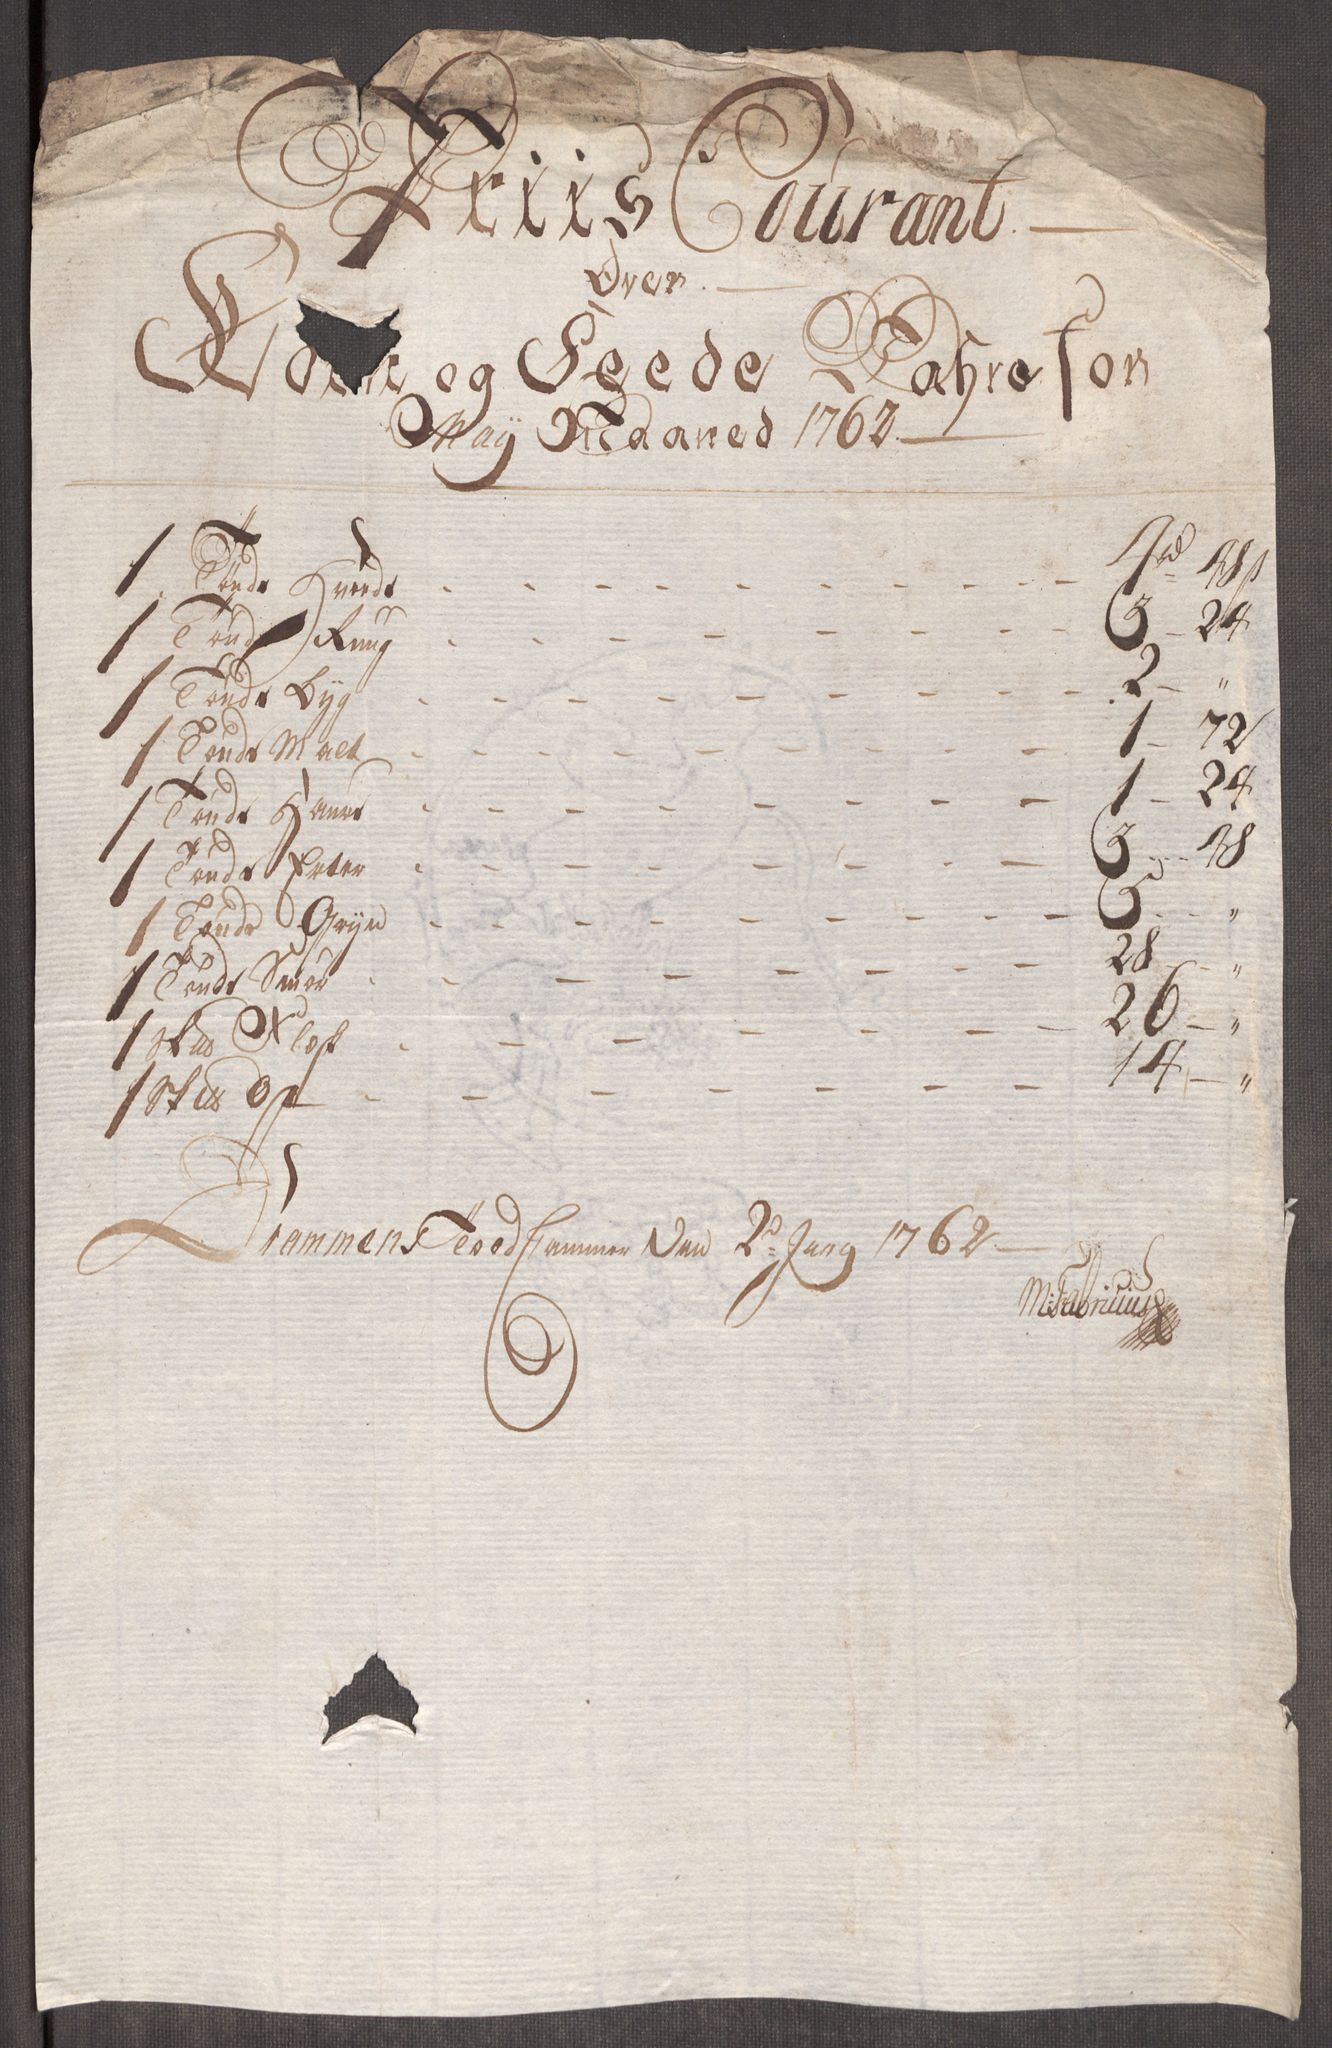 Priis Courant
Over
og Feede Vahre for
Maÿ Maaned 1762
1 Tønde Hvede - - - 4 rd 48 s
1 Tønde Rug - - - 3 - 24
1 Tønde Byg - - - 2 - "
1 Tønde Malt - - - 1 - 72
1 Tønde Haure - - - 1 - 24
1 Tønde Erter - - - 3 - 48
1 Tønde Gryn - - - 6 - "
1 Tønde Smør - - - 28 - "
1 - - - 26 - "
1 - - - 14 - "
Drammens Toed Cammer den 2d Juny 1762
M: Fabricius